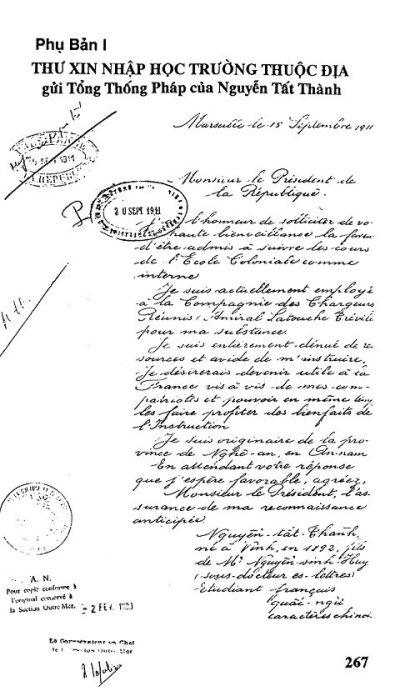 Phụ Bản I
THƯ XIN NHẬP HỌC TRƯỜNG THUỘC ĐỊA
gửi Tổng Thống Pháp của Nguyễn Tất Thành
Marseille le 15 Septembre 1911
Monsieur le Président de
la République
20 SEPT 1911
l'honneur de solliciter de vo
haute bienveillance la faveur
d'être admis à suivre les cours
de l'Ecole Coloniale comme
interne
Je suis actuellement employé
à la Compagnie des Chargeurs
Réunis, Amiral Latouche Tréville
pour ma substance.
Je suis entièrement dénué de res
sources et avide de m'instruire.
Je désirerais devenir utile à la
France vis à vis de mes com-
patriotes et pouvoir en même temps
les faire profiter des bienfaits de
l'Instruction
Je suis originaire de la pro-
vince de Nghê-an, en An-nam
En attendant votre réponse
que j'espère favorable, agréez,
Monsieur le Président, l'as
surance de ma reconnaissance
anticipée.
Nguyễn-tất-Thành,
né à Vinh, en 1892, fils
de Mr Nguyễn sinh Huy
(sous-docteur ès-lettres)
Etudiant français
quốc-ngữ
caractères chinois
A. N.
Pour copie conforme à
l'original conservé à
la Section Outre-Mer,
- 2 FEV. 1983
Le Conservateur en Chef
267